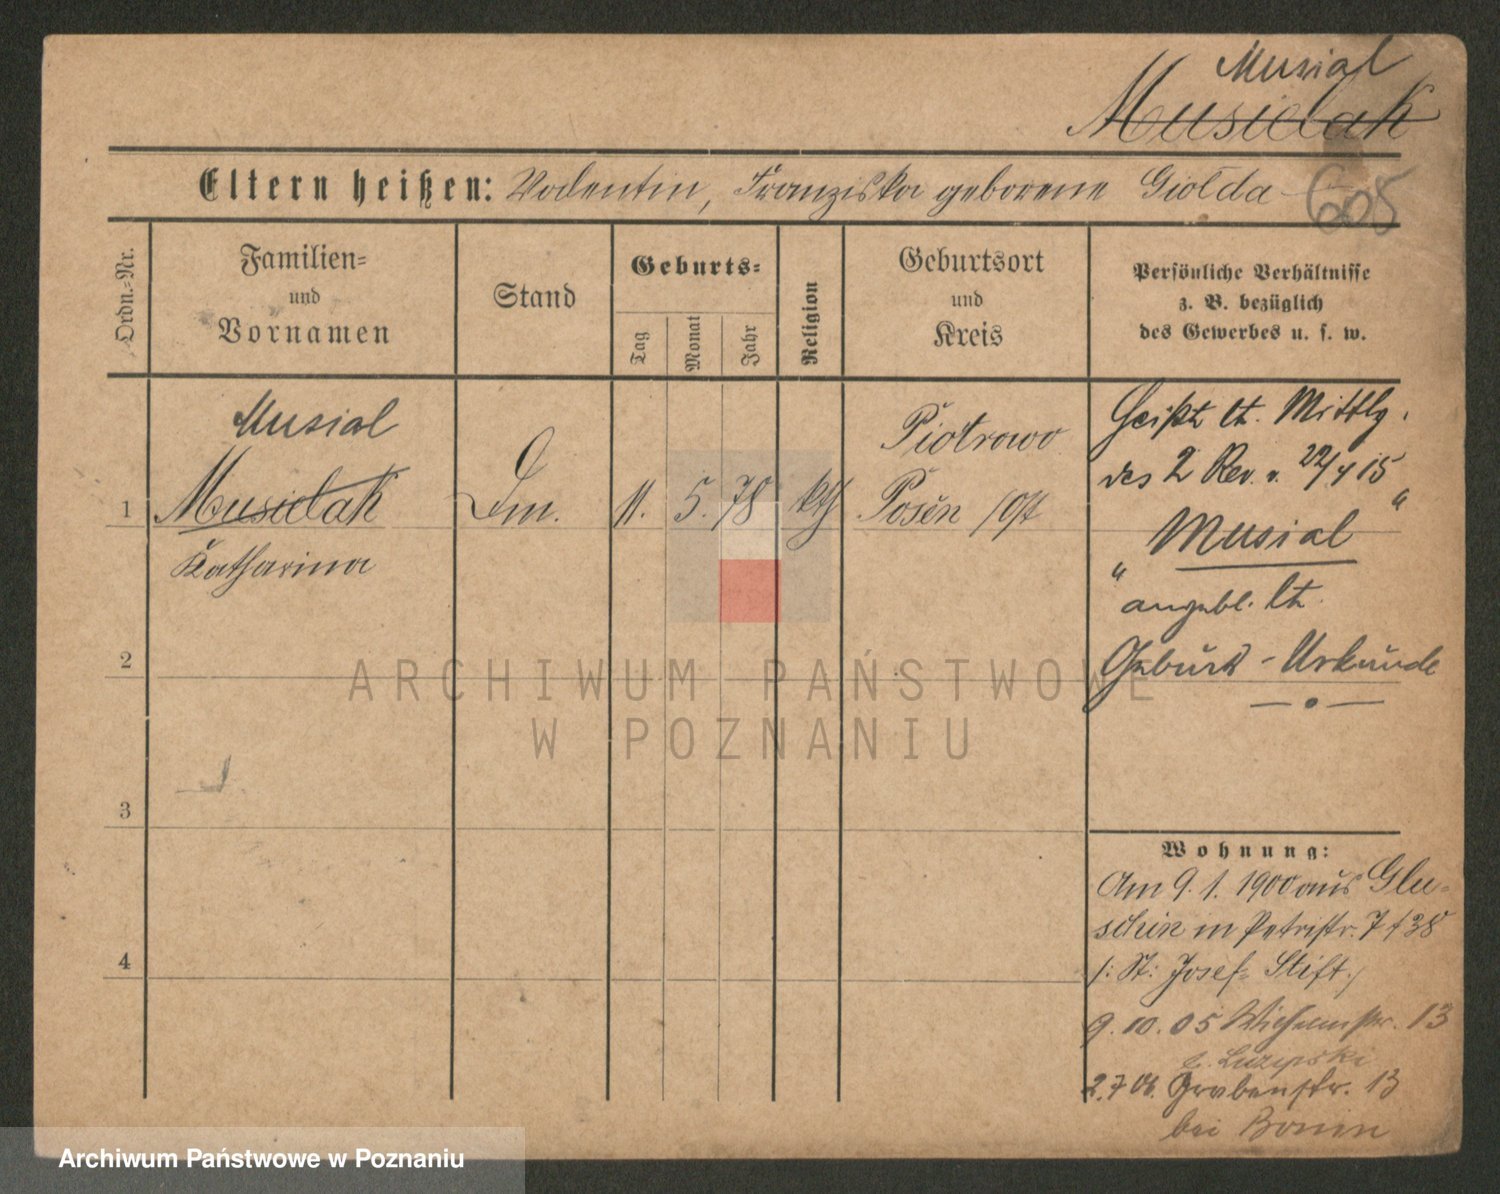 Musial
Musielak
Eltern heißen: Valentin, Franziska geborene Giolda
605
Ordn.-Nr.
Familien-
und
Vornamen
Stand
Geburts-
Tag
Monat
Jahr
Religion
Geburtsort
und
Kreis
Persönliche Verhältnisse
z. B. bezüglich
des Gewerbes u. s. w.
Musial
1 Musielak
Katharina
11. 5. 78 kth
Piotrowo
Posen /Ost
Heißt lt. Mittlg.
des 2 Rev. v. 22/4 15
" Musial "
angebl. lt.
Geburts-Urkunde
2
3
4
Wohnung:
Am 9. 1. 1900 aus Glu-
schin in Petristr. 7 f 38
/: St: Josef-Stift :/
9. 10. 05 Wilhelmstr. 13
2. 7 06. Grabenstr. 13
bei Bonin
ARCHIWUM PAŃSTWOWE
W POZNANIU
Archiwum Państwowe w Poznaniu